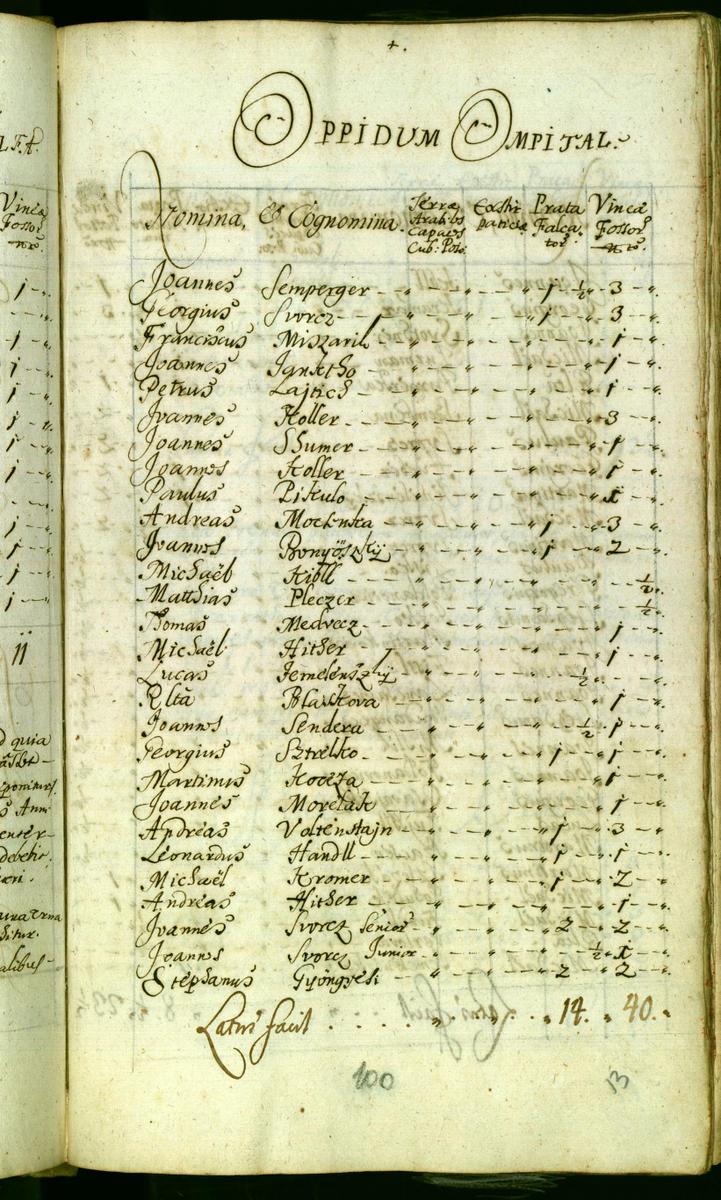 +.
OPPIDUM OMPITAL.
Nomina, & Cognomina. Terræ Arabiles Capaces Cub: Poso: Exstirpaticiæ Prata Falcator Vineæ Fossor
Joannes Semperger - „ - „ - 1 ½ 3 - „.
Georgius Svorcz - „ - „ - 1 - „ 3 - „.
Franciscus Miszarik - „ - „ - „ 1 - „.
Joannes Ignetho - „ - „ - „ 1 - „.
Petrus Lajtich - „ - „ - „ 1 - „.
Joannes Holler - „ - „ - „ 3 - „.
Joannes Shumer - „ - „ - „ 1 - „.
Joannes Holler - „ - „ - „ 1 - „.
Paulus Pikulo - „ - „ - „ 1 - „.
Andreas Mocknka - „ - „ - 1 - „ 3 - „.
Joannes Bonyöszky - „ - „ - 1 - „ 2 - „.
Michaël - „ - „ - „ - ½.
Matthias Pleczer - „ - „ - „ - ½.
Thomas Medvecz - „ - „ - „ 1 - „.
Michaël Hither - „ - „ - „ 1 - „.
Lucas Jemelenszky - „ - „ - ½ - „.
Rlta Blaskova - „ - „ - „ 1 - „.
Joannes Sendera - „ - „ - ½ 1 - „.
Georgius Sztrelko - „ - „ - 1 - „ 1 - „.
Martinus Kocza - „ - „ - „ 1 - „.
Joannes Morelak - „ - „ - „ 1 - „.
Andreas Voltenstajn - „ - „ - 1 - „ 3 - „.
Leonardus Handll - „ - „ - 1 - „ 1 - „.
Michaël Kromer - „ - „ - 1 - „ 2 - „.
Andreas Hither - „ - „ - „ 1 - „.
Joannes Svorcz Senior - „ - „ - 2 - „ 2 - „.
Joannes Svorcz Junior - „ - „ - ½ 1 - „.
Stephanus Gyöngyesi - „ - „ - 2 - „ 2 - „.
Latus facit . . . . „ . . „ . . „ 14. „ 40. „
100 13